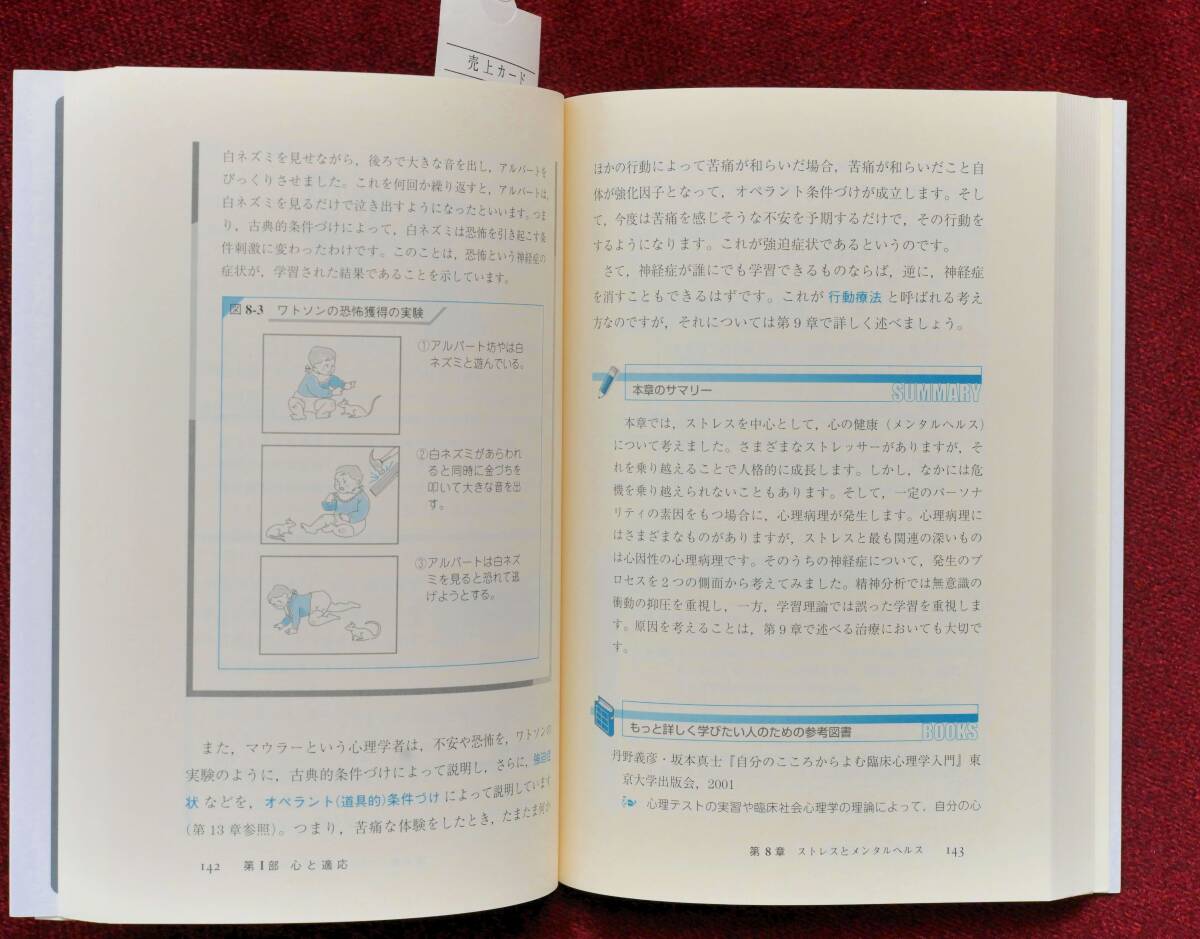 売上カード
白ネズミを見せながら，後ろで大きな音を出し，アルバートを
びっくりさせました。これを何回か繰り返すと，アルバートは，
白ネズミを見るだけで泣き出すようになったといいます。つま
り，古典的条件づけによって，白ネズミは恐怖を引き起こす条
件刺激に変わったわけです。このことは，恐怖という神経症の
症状が，学習された結果であることを示しています。
図 8-3 ワトソンの恐怖獲得の実験
①アルバート坊やは白
ネズミと遊んでいる。
②白ネズミがあらわれ
ると同時に金づちを
叩いて大きな音を出
す。
③アルバートは白ネズ
ミを見ると恐れて逃
げようとする。
また，マウラーという心理学者は，不安や恐怖を，ワトソンの
実験のように，古典的条件づけによって説明し，さらに，強迫症
状などを，オペラント(道具的)条件づけによって説明しています
(第13章参照)。つまり，苦痛な体験をしたとき，たまたま何か
142 第Ⅰ部 心と適応
ほかの行動によって苦痛が和らいだ場合，苦痛が和らいだこと自
体が強化因子となって，オペラント条件づけが成立します。そし
て，今度は苦痛を感じそうな不安を予期するだけで，その行動を
するようになります。これが強迫症状であるというのです。
さて，神経症が誰にでも学習できるものならば，逆に，神経症
を消すこともできるはずです。これが 行動療法 と呼ばれる考え
方なのですが，それについては第9章で詳しく述べましょう。
本章のサマリー SUMMARY
本章では，ストレスを中心として，心の健康（メンタルヘルス）
について考えました。さまざまなストレッサーがありますが，そ
れを乗り越えることで人格的に成長します。しかし，なかには危
機を乗り越えられないこともあります。そして，一定のパーソナ
リティの素因をもつ場合に，心理病理が発生します。心理病理に
はさまざまなものがありますが，ストレスと最も関連の深いもの
は心因性の心理病理です。そのうちの神経症について，発生のプ
ロセスを2つの側面から考えてみました。精神分析では無意識の
衝動の抑圧を重視し，一方，学習理論では誤った学習を重視しま
す。原因を考えることは，第9章で述べる治療においても大切で
す。
もっと詳しく学びたい人のための参考図書 BOOKS
丹野義彦・坂本真士『自分のこころからよむ臨床心理学入門』東
京大学出版会，2001
心理テストの実習や臨床社会心理学の理論によって，自分の心
第8章 ストレスとメンタルヘルス 143